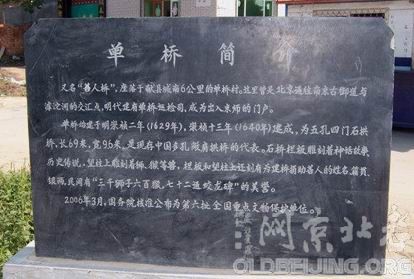 单桥简介
又名"善人桥"，座落于献县城南6公里的单桥村。这里曾是北京通往南京古御道与
滹沱河的交汇点，明代建有单桥巡检司，成为出入京师的门户。
单桥始建于明崇祯二年（1629年），崇祯十三年（1640年）建成，为五孔四门石拱
桥，长69米，宽9.6米，是现存中国多孔敞肩拱桥的代表。石桥栏板雕刻着神话故事、
历史传说，望柱上雕刻着狮、猴等兽，栏板和望柱上还刻有为建桥捐助善人的姓名、籍贯、
银两，民间有"三千狮子六百猴，七十二通蛟龙碑"的美誉。
2006年3月，国务院核准公布为第六批全国重点文物保护单位。
OLDBEIJING.ORG